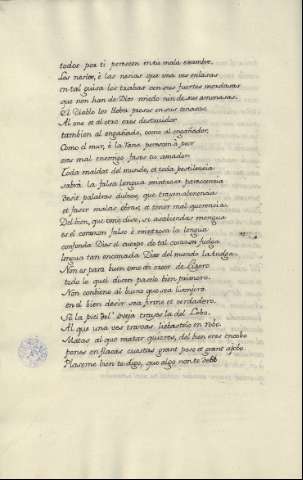 todos por ti perecen en tu mala estambre.
Los necios, è las necias que una vez enlasas
en tal guisa los trabas con tus fuertes mordasas
que non han de Dios miedo nin de sus amenasas.
El Diablo los lleba presos en sus tenasas.
Al uno et al otro eres destruidor
tambien al engañado, como al engañador.
Como el mur, è la rana perecen à peor
eres mal enemigo fases te amador.
Toda maldat del mundo, et toda pestilencia
sobre la falsa lengua mintrosa
Desir palabras dulces, que trayen
et faser malas obras, et tener mal querencia.
Del bien, que ome dice, si a sabiendas mengua
es el corazon falso è mintrosa la lengua
confonda Dios el cuerpo de tal corazon fuelga
lengua tan enconada Dios del mundo la tuelga.
Non es para buen ome de creer de ligero
todo lo quel dixen paselo bien primero.
Non conviene al bueno que sea lisonjero
en el bien desir sea firme et verdadero.
So la piel del oveja trayes la del Lobo.
Al que una vez travas liebastelo en robo.
Matas al que matar quieres, del bien eres encobo
pones en flacas cuestas grant peso et grant ajobo.
Placeme bien te digo, que algo non te debo